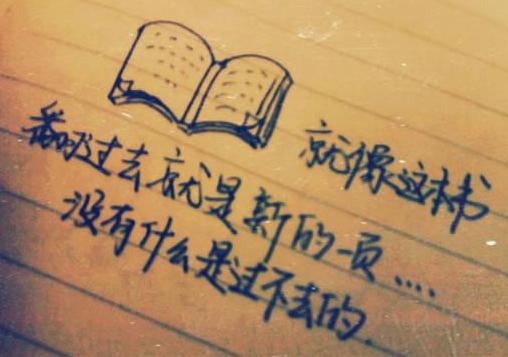 就像这本书
翻过去就是新的一页....
没有什么是过不去的.